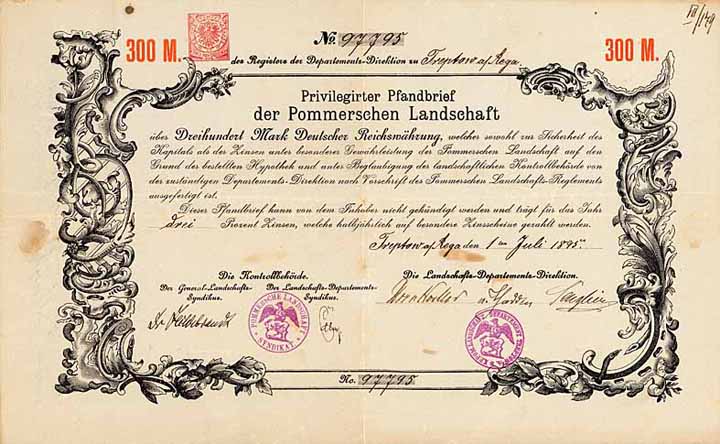 VII/149
No. 97795
300 M.
300 M.
des Registers der Departements-Direktion zu Treptow a/Rega.
Privilegirter Pfandbrief
der Pommerschen Landschaft
über Dreihundert Mark Deutscher Reichswährung, welcher sowohl zur Sicherheit des
Kapitals als der Zinsen unter besonderer Gewährleistung der Pommerschen Landschaft auf den
Grund der bestellten Hypothek und unter Beglaubigung der landschaftlichen Kontrollbehörde von
der zuständigen Departements-Direktion nach Vorschrift des Pommerschen Landschafts-Reglements
ausgefertigt ist.
Dieser Pfandbrief kann von dem Inhaber nicht gekündigt werden und trägt für das Jahr
drei Prozent Zinsen, welche halbjährlich auf besondere Zinsscheine gezahlt werden.
Treptow a/Rega den 1ten Juli 1895.
Die Kontrollbehörde.
Die Landschafts-Departements-Direktion.
Der General-Landschafts-Syndikus.
Der Landschafts-Departements-Syndikus.
POMMERSCHE LANDSCHAFT
SYNDIKAT
No. 97795.